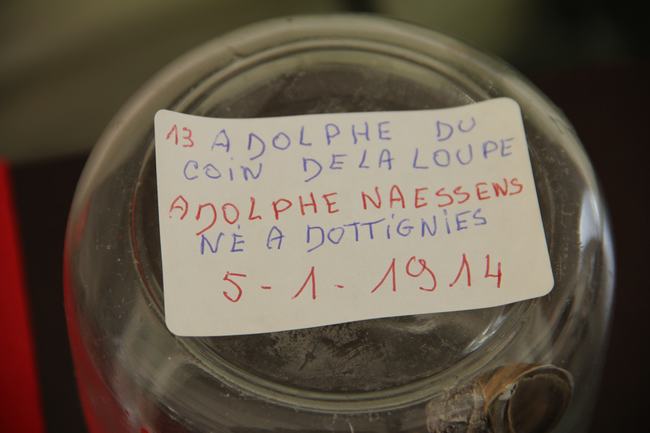 13 ADOLPHE DU
COIN DE LA LOUPE
ADOLPHE NAESSENS
NÉ A DOTTIGNIES
5-1-1914